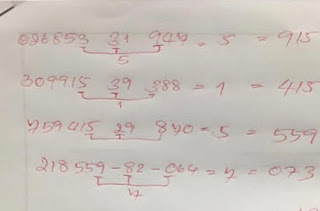 026853 31 947 = 5 = 915
5
309915 39 388 = 1 = 415
1
759415 29 870 = 5 = 559
218 559 - 82 - 064 = 7 = 073
7